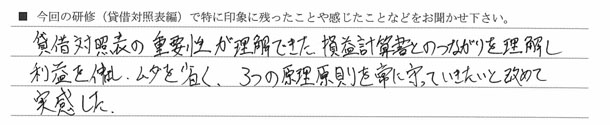 ■ 今回の研修（貸借対照表編）で特に印象に残ったことや感じたことなどをお聞かせ下さい。
貸借対照表の重要性が理解できた 損益計算書とのつながりを理解し
利益を 、ムダを省く、3つの原理原則を常に守っていきたいと改めて
実感した.